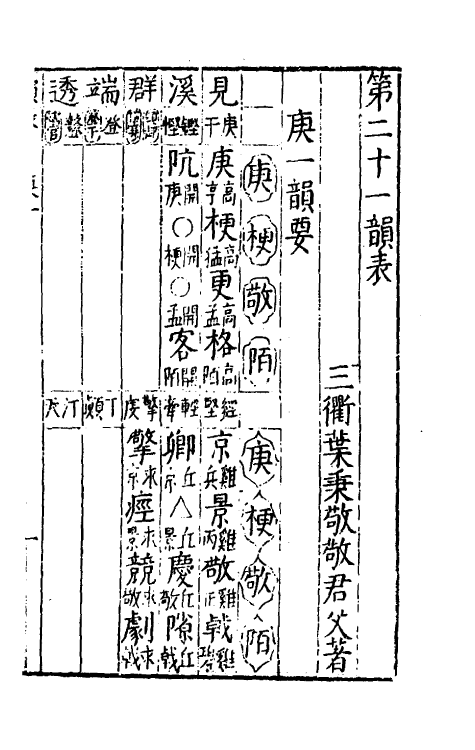 第二十一韻表
三衢葉秉敬敬君父著
庚一韻要
庚 梗 敬 陌
庚 梗 敬 陌
見 庚干 庚高亨 梗高猛 更高孟 格高陌
經堅 京雞兵 景雞丙 敬雞正 戟雞
溪 鏗慳 阬開庚 ○開梗 ○開孟 客開陌
輕牽 卿丘京 △丘景 慶丘敬 隙丘戟
群
擎虔 擎求京 痙求景 競求敬 劇求戟
端 登
丁顛
透
汀天
一